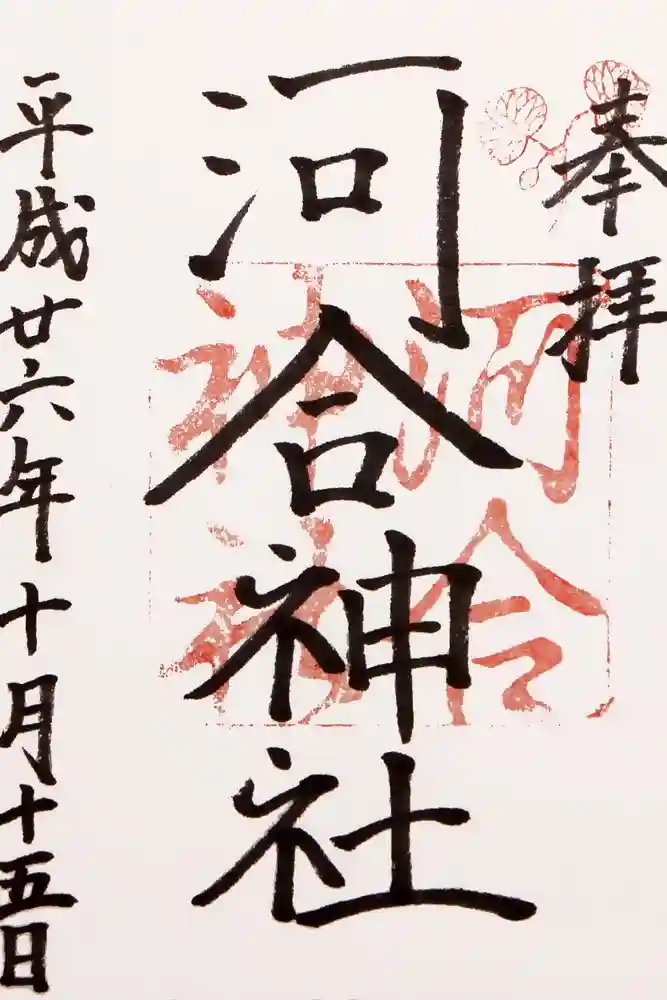 奉拝
河合神社
河合
神社
平成廿六年十月十五日